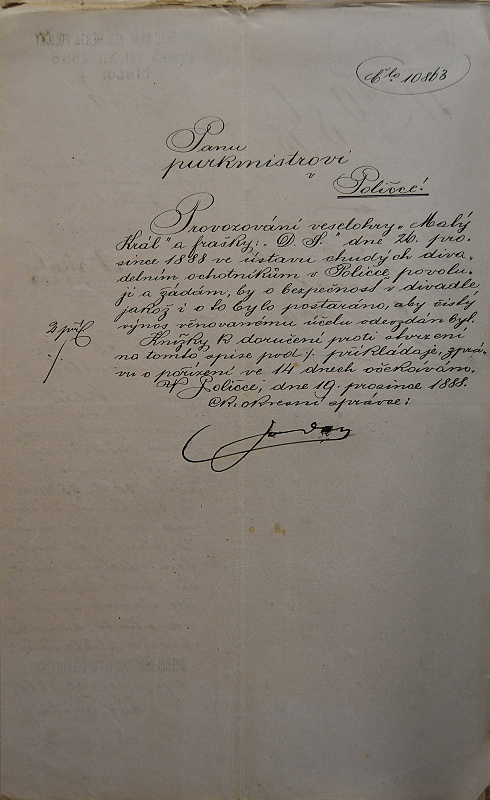 Čílo 10863
Panu
purkmistrovi
v
Poličce!
Provozování veselohry „Malý
Král" a frašky: „D. S." dne 26. pro-
since 1888 ve ústavu chudých diva-
delním ochotníkům v Poličce, povolu-
ji a žádám, by o bezpečnost v divadle
jakož i o to bylo postaráno, aby čistý
výnos věnovanému účelu odevzdán byl.
2 příl
Knížky k doručení proti stvrzení
na tomto spise pod ·/. přikládaje, zprá-
vu o pořízení ve 14 dnech očekávám.
V Poličce, dne 19. prosince 1888.
Ck. okresní správce: